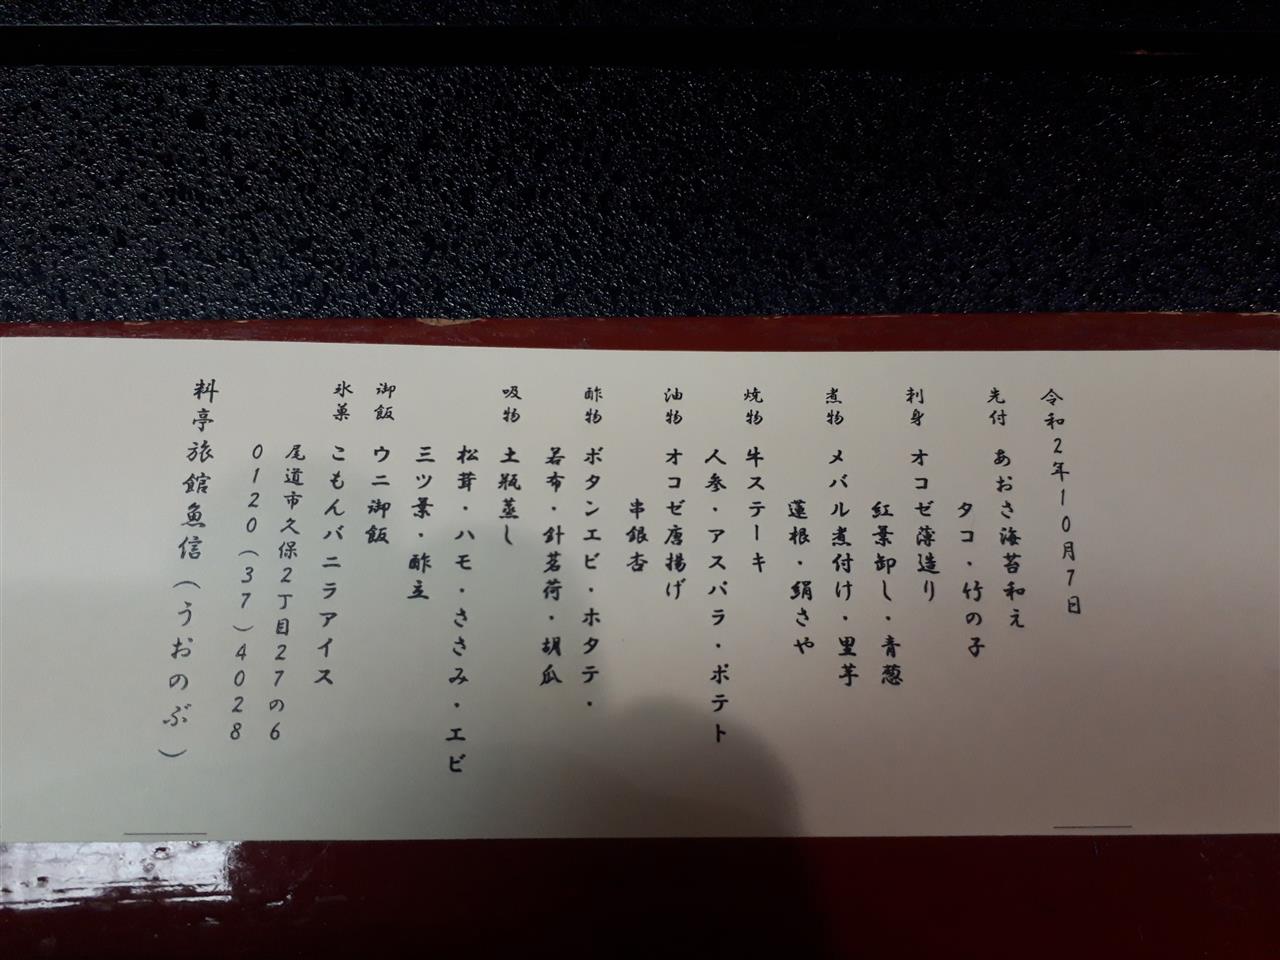 令和2年10月7日
先付 あおさ海苔和え
タコ・竹の子
刺身 オコゼ薄造り
紅葉卸し・青葱
煮物 メバル煮付け・里芋
蓮根・絹さや
焼物 牛ステーキ
人参・アスパラ・ポテト
油物 オコゼ唐揚げ
串銀杏
酢物 ボタンエビ・ホタテ・
若布・針茗荷・胡瓜
吸物 土瓶蒸し
松茸・ハモ・ささみ・エビ
三ツ葉・酢立
御飯 ウニ御飯
氷菓 こもんバニラアイス
尾道市久保2丁目27の6
0120(37)4028
料亭旅館魚信(うおのぶ)